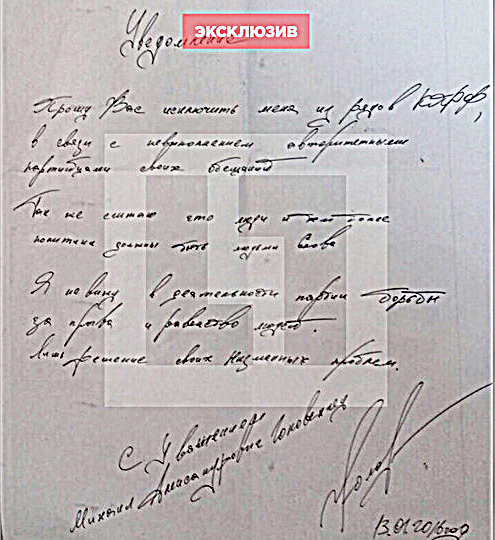 ЭКСКЛЮЗИВ
Уведомление
Прошу Вас исключить меня из рядов КПРФ,
в связи с невыполнением авторитетными
партийцами своих обещаний
Так же считаю что люди и тем более
политики должны быть людьми слова
Я не вижу в деятельности партии борьбы
за права и равенство людей.
Лишь решение своих низменных проблем.
С Уважением
Михаил Александрович
13.01.2016 год